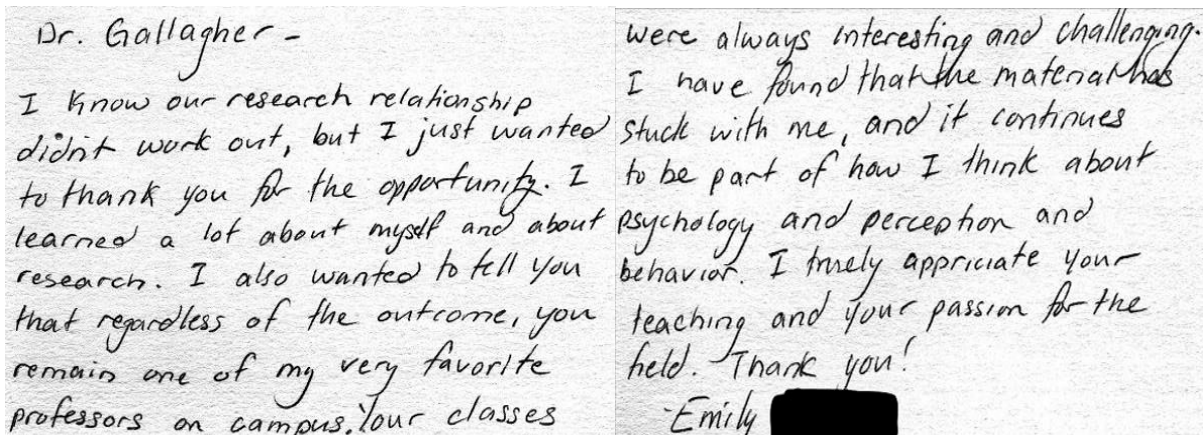 Dr. Gallagher -
I know our research relationship
didn't work out, but I just wanted
to thank you for the opportunity. I
learned a lot about myself and about
research. I also wanted to tell you
that regardless of the outcome, you
remain one of my very favorite
professors on campus. Your classes
were always interesting and challenging.
I have found that the material has
stuck with me, and it continues
to be part of how I think about
psychology and perception and
behavior. I truely appriciate your
teaching and your passion for the
field. Thank you!
-Emily